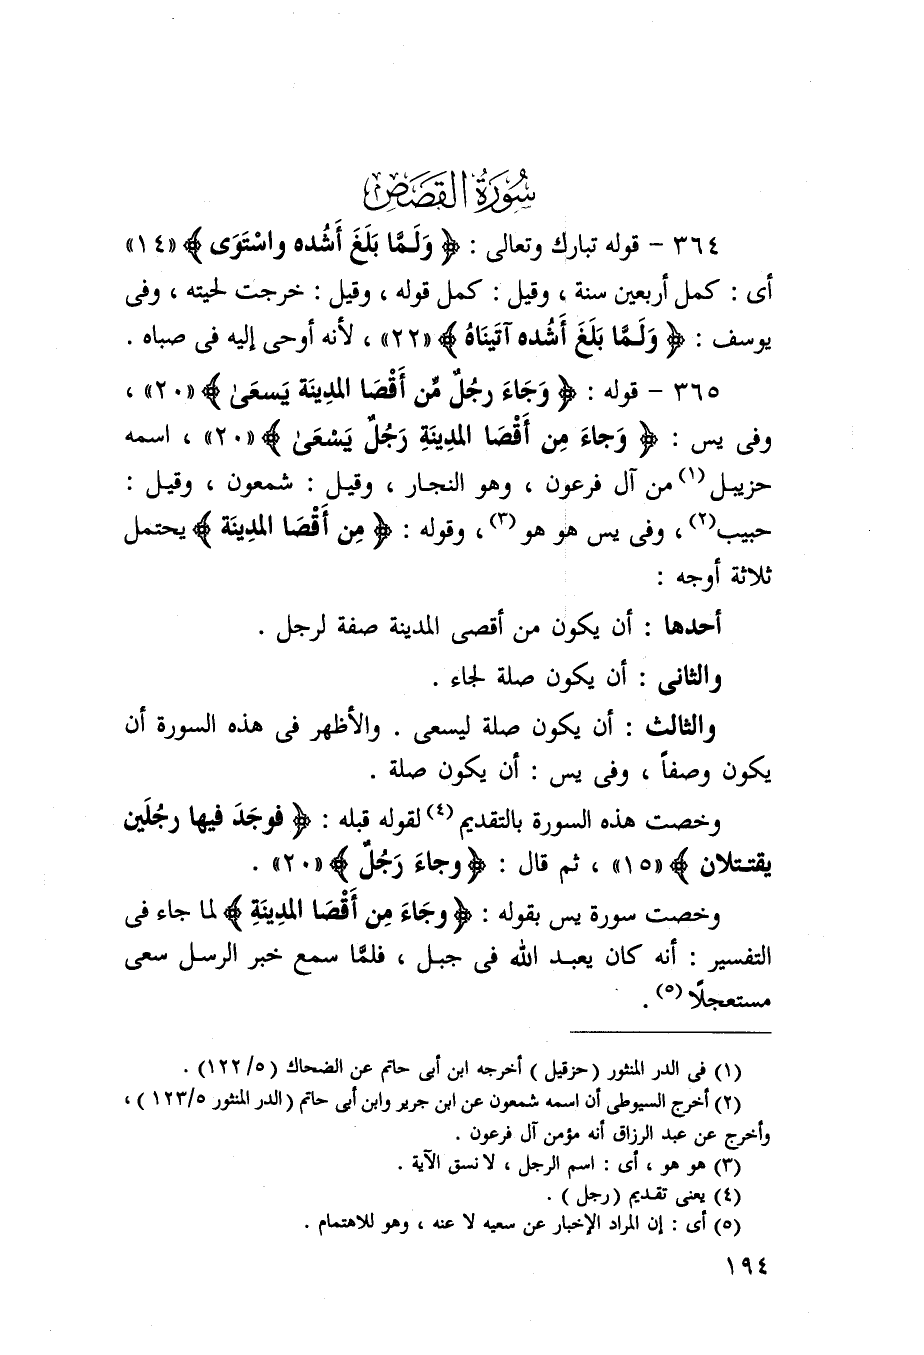 سُورَةُ القَصَصِ
٣٦٤ – قوله تبارك وتعالى : ﴿ وَلَـمَّا بَلَغَ أَشُده واسْتَوَى ﴾ «١٤»
أى : كمل أربعين سنة ، وقيل : كمل قوله ، وقيل : خرجت لحيته ، وفى
يوسف : ﴿ وَلَـمَّا بَلَغَ أَشُده آتَينَاهُ ﴾ «٢٢» ، لأنه أوحى إليه فى صباه .
٣٦٥ – قوله : ﴿ وَجَاءَ رجُلٌ مِّن أَقْصَا المدِينَة يَسعَىٰ ﴾ «٢٠» ،
وفى يس : ﴿ وَجاءَ مِن أَقْصَا المدِينَةِ رَجُلٌ يَسْعَىٰ ﴾ «٢٠» ، اسمه
حزيبل(١) من آل فرعون ، وهو النجار ، وقيل : شمعون ، وقيل :
حبيب(٢) ، وفى يس هو هو(٣) ، وقوله : ﴿ مِن أَقْصَا المدِينَة ﴾ يحتمل
ثلاثة أوجه :
أحدها : أن يكون من أقصى المدينة صفة لرجل .
والثانى : أن يكون صلة لجاء .
والثالث : أن يكون صلة ليسعى . والأظهر فى هذه السورة أن
يكون وصفاً ، وفى يس : أن يكون صلة .
وخصت هذه السورة بالتقديم(٤) لقوله قبله : ﴿ فوجَدَ فيها رجُلَين
يقتـتلان ﴾ «١٥» ، ثم قال : ﴿ وجاءَ رَجُلٌ ﴾ «٢٠» .
وخصت سورة يس بقوله : ﴿ وجَاءَ مِن أَقْصَا المدِينَةِ ﴾ لما جاء فى
التفسير : أنه كان يعبـد الله فى جبـل ، فلمَّا سمع خبر الرسـل سعى
مستعجلًا(٥) .
(١) فى الدر المنثور (حزقيل ) أخرجه ابن أبى حاتم عن الضحاك (٥/ ١٢٢) .
(٢) أخرج السيوطى أن اسمه شمعون عن ابن جرير وابن أبى حاتم (الدر المنثور ١٢٣/٥ ) ،
وأخرج عن عبد الرزاق أنه مؤمن آل فرعون .
(٣) هو هو ، أى : اسم الرجل ، لا نسق الآية .
(٤) يعنى تقديم (رجل ) .
(٥) أى : إن المراد الإخبار عن سعيه لا عنه ، وهو للاهتمام .
١٩٤